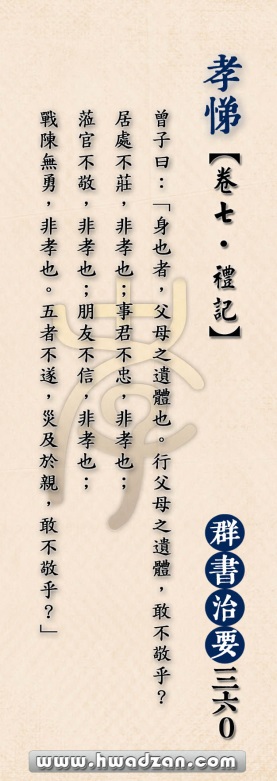 孝悌【卷七·禮記】
群書治要三六0
曾子曰：「身也者，父母之遺體也。行父母之遺體，敢不敬乎？
居處不莊，非孝也；事君不忠，非孝也；
蒞官不敬，非孝也；朋友不信，非孝也；
戰陳無勇，非孝也。五者不遂，災及於親，敢不敬乎？」
孝
www.hwadzan.com